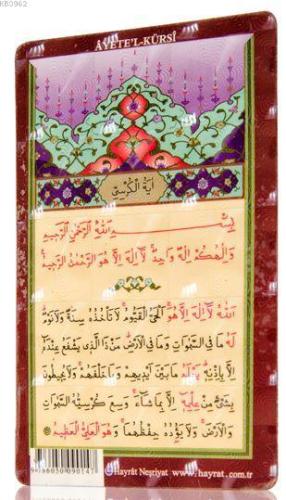 KB0962
ÂYETE'L-KÜRSÎ
اٰيَةُ الْكُرْسِيِّ
بِسْمِ اللّٰهِ الرَّحْمٰنِ الرَّحِيمِ
وَاِلٰهُكُمْ اِلٰهٌ وَاحِدٌ لَا اِلٰهَ اِلَّا هُوَ الرَّحْمٰنُ الرَّحِيمُ
اَللّٰهُ لَا اِلٰهَ اِلَّا هُوَ اَلْحَيُّ الْقَيُّومُ لَا تَأْخُذُهُ سِنَةٌ وَلَا نَوْمٌ
لَهُ مَا فِي السَّمٰوَاتِ وَمَا فِي الْاَرْضِ مَنْ ذَا الَّذِي يَشْفَعُ عِنْدَهُ
اِلَّا بِاِذْنِهِ يَعْلَمُ مَا بَيْنَ اَيْدِيهِمْ وَمَا خَلْفَهُمْ وَلَا يُحِيطُونَ
بِشَيْءٍ مِنْ عِلْمِهِ اِلَّا بِمَا شَاءَ وَسِعَ كُرْسِيُّهُ السَّمٰوَاتِ
وَالْاَرْضَ وَلَا يَؤُدُهُ حِفْظُهُمَا وَهُوَ الْعَلِيُّ الْعَظِيمُ
Hayrât Neşriyat www.hayrat.com.tr